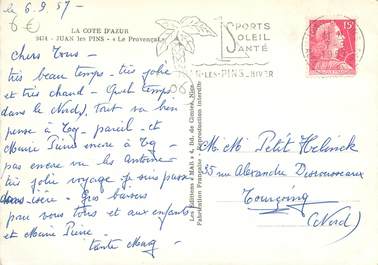 le 6.9.57 -
6 €
LA COTE D'AZUR
9474 - JUAN les PINS - « Le Provençal »
Chers Tous -
très beau temps - très jolie
et très chaud - Quel temps
dans le Nord, tout va bien
pense à toy - pareil - et
Marie Pierre encore à
pas encore vu les Antoine
très jolie voyage je suis passé
Isère - Gros baisers
pour vous tous et aux enfants
et Marie Pierre -
tante Mag
SPORTS
SOLEIL
SANTÉ
JUAN-LES-PINS - HIVER
06
15F
Les Editions « MAR » 4, Bd. de Cimiez, Nice
Fabrication Française - Reproduction interdite
M. M Petit Helinck
35 rue Alexandre Desrousseaux
Tourcoing
(Nord)